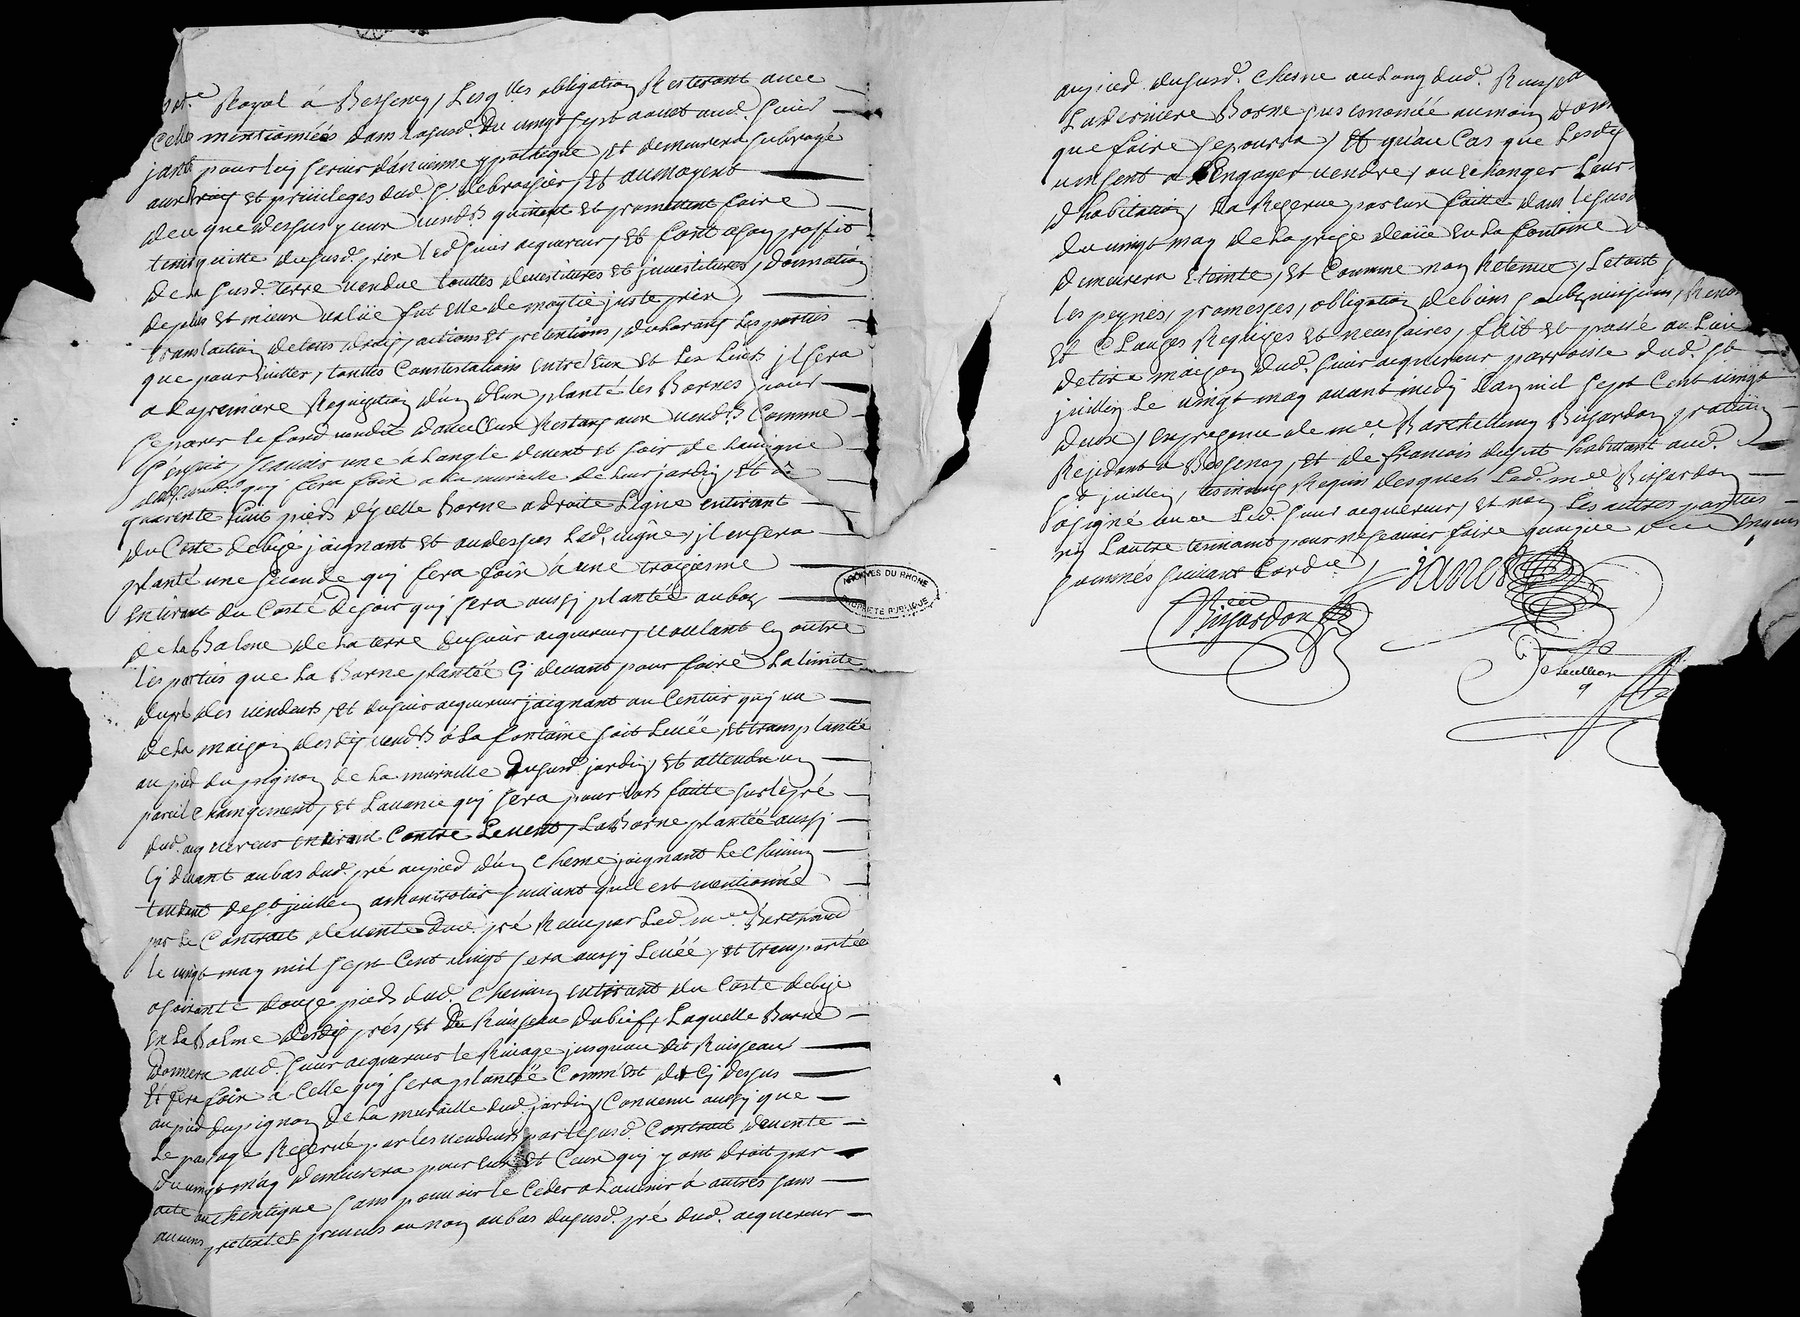 Royal a Bessenay, Lesq.lles obligation Resteront avec
Celle mentionnées dans lasusd. Du vingt sept aoust aud. Guir
pour luy servir d'ancienne ypoteque, Et demeurera subrogé
aux droits Et privileges dud. Sr. debrossier, Et aumoyent
dece que dessus yceux vendrs quittent Et promettent faire
tenir quitte dususd. prix led. Guir acquereur, Et font a son proffit
de la susd. terre vendue touttes devestitures Et jnvestitures, donnation
deplus Et mieux vallüe fut Elle de moytié juste prix,
translaction de tous droits, actions Et pretentions, declarans Les parties
que pour Eviter, touttes Contestations Entre Eux Et Les Leurs jl sera
a la premiere Requisition d'un d'Eux planté les Bornes pour
separer le fond vendu d'avec Ceux Restans aux vendrs Comme
s'ensuit, scavoir une a Langle devent Et soir de la vigne
desd. vendrs quj sera foix a la muraille de leur jardin, Et a
quarente huit pieds d'ycelle Borne a droite Ligne en tirant
Du Costé debize joignant Et audessus Lad. vigne, jl en sera
planté une seconde quj fera foix à une troizieme
En tirant du Costé de soir quj sera aussj plantée au bas
de La Balme de la terre dusieur acquereur, voulant En outre
Les parties que La Borne plantée Cj devant pour faire La limite
du pré des vendeurs, Et dusieur acquereur joignant au Sentier quj va
de La maison desdits vendrs à la fontaine soit Levée, Et transplantée
au pied du pignon de La muraille dususd. jardin, Et attendu un
pareil Changement, Et Lavance quj sera pour lors faitte sur le pré
dud. acquereur en tirant Contre Levent, La Borne plantée aussj
Cj devant au bas dud. pré au pied d'un Chesne joignant Le Chemin
tendant de St. jullien suivant qu'il est mentionné
par Le Contrait de vente dud. pré Receu par Led. me. Bertrand
le vingt may mil sept Cent vingt sera aussy Levée, Et transportée
a soixante douze pieds dud. Chemin en tirant du Costé debize
En La Balme desdits prés, Et Du Ruisseau du bief, Laquelle Borne
Donnera aud. Guir acquereur le Rivage jusqu'au dit Ruisseau
Et fera foix à Celle quj sera plantée Comm'Est dit Cj dessus
au pied du pignon De La muraille dud. jardin, Convenu aussy que
Le passage Reservé par les vendeurs par le susd. Contrait devente
du vingt may demeurera pour Eux Et Ceux quj y ont droit par
acte authentique sans pouvoir le Ceder a Lavenir à autres sans
aucuns pretextes preveus ou non au bas dususd. pré dud. acquereur
au pied dususd. Chesne au Long dud.
La derniere Borne sus enoncée au moins
que faire se pourra, Et qu'au Cas que Lesdits
vinsent a Engager vendre, ou Echanger Leur
d'habitation, La Reserve par Eux faitte dans le susd
du vingt may de La prise deaüe En La fontaine
demeurera Eteinte, Et Comme non Retenue, Letout
Les peynes, promesses, obligation de biens
Et Clauzes Requises Et necessaires, fait Et passé au Lieu
detire maison dud. Guir acquereur parroisse dud. St
jullien Le vingt may avant midy Lan mil sept Cent vingt
deux, En presence de me. Barthellemy Bissardon praticien
Residant a Bessenay, Et de francois habitant aud.
St jullien, tesmoins Requis desquels Led. me. Bissardon
a signé avec Led. Guir acquereur, Et non Les autres parties
ny Lautre temoint pour ne scavoir faire quoique de ce Enquis
sommés suivant Lordce,
Bissardon
ARCHIVES DU RHONE
PROPRIETE PUBLIQUE